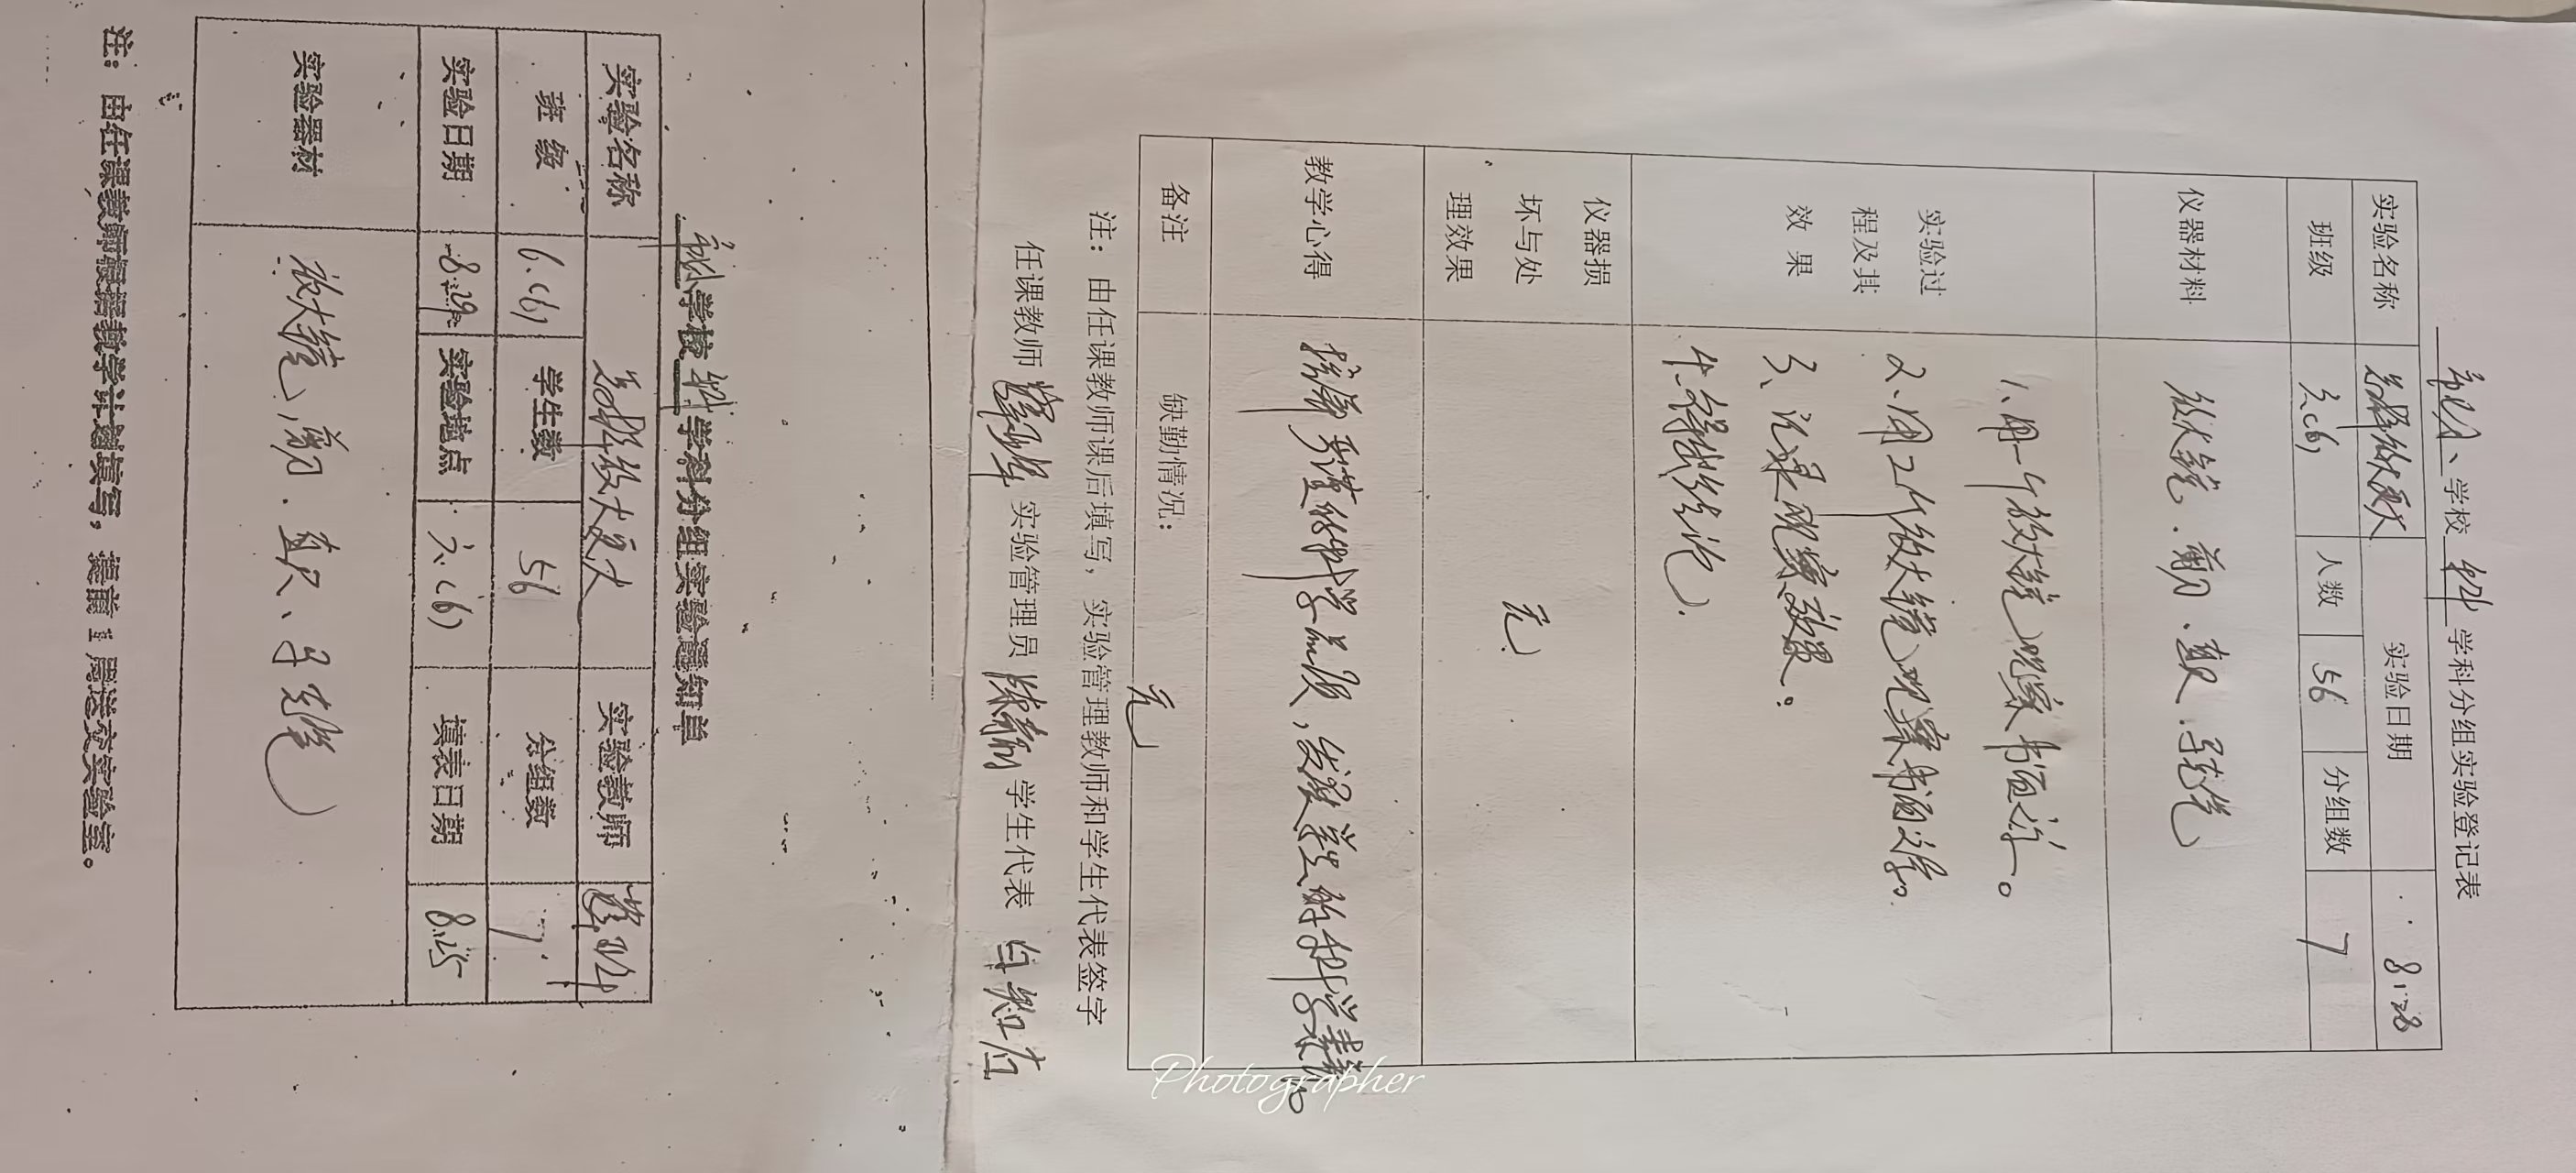 学校 科学 学科分组实验登记表
实验名称 怎样放得更大 实验日期 8.28
班级 六(6) 人数 56 分组数 7
仪器材料 放大镜、剪刀、直尺、铅笔
实验过程及其效果
1、用一个放大镜观察书面文字。
2、用2个放大镜观察书面文字。
3、记录观察效果。
4、得出结论。
仪器损坏与处理效果 无
教学心得 培养严谨的科学品质,发展学生的科学素养。
备注 缺勤情况: 无
注: 由任课教师课后填写, 实验管理教师和学生代表签字
任课教师 实验管理员 学生代表
学校 科学 学科分组实验通知单
实验名称 怎样放大更大 实验教师
班 级 6.(6) 学生数 56 分组数 7
实验日期 8.29 实验地点 六(6) 填表日期 8.25
实验器材 放大镜、剪刀、直尺、铅笔
注: 由任课教师根据教学计划填写, 提前1周送交实验室。
Photographer